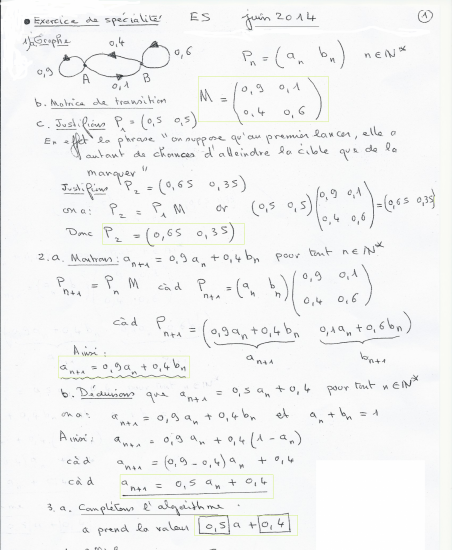 • Exercice de spécialité ES juin 2014 ①
1) a. Graphe
0,4
0,6
0,9 A B
0,1
P_n = (a_n b_n) n ∈ ℕ*
b. Matrice de transition M = (0,9 0,1
0,4 0,6)
c. Justifions P_1 = (0,5 0,5)
En effet la phrase "on suppose qu'au premier lancer, elle a
autant de chances d'atteindre la cible que de la
manquer"
Justifions P_2 = (0,65 0,35)
on a: P_2 = P_1 M or (0,5 0,5) (0,9 0,1
0,4 0,6) = (0,65 0,35)
Donc P_2 = (0,65 0,35)
2. a. Montrons: a_{n+1} = 0,9 a_n + 0,4 b_n pour tout n ∈ ℕ*
P_{n+1} = P_n M càd P_{n+1} = (a_n b_n) (0,9 0,1
0,4 0,6)
càd P_{n+1} = (0,9 a_n + 0,4 b_n 0,1 a_n + 0,6 b_n)
a_{n+1} b_{n+1}
Ainsi:
a_{n+1} = 0,9 a_n + 0,4 b_n
b. Déduisons que a_{n+1} = 0,5 a_n + 0,4 pour tout n ∈ ℕ*
on a: a_{n+1} = 0,9 a_n + 0,4 b_n et a_n + b_n = 1
Ainsi: a_{n+1} = 0,9 a_n + 0,4 (1 - a_n)
càd a_{n+1} = (0,9 - 0,4) a_n + 0,4
càd a_{n+1} = 0,5 a_n + 0,4
3. a. Complétons l'algorithme:
a prend la valeur 0,5 a + 0,4